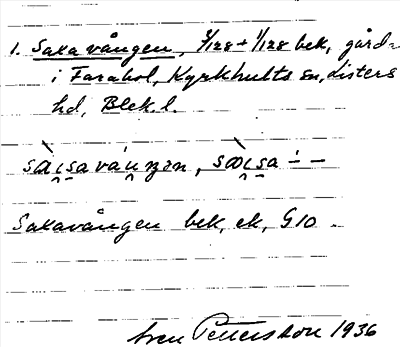 1. Saxavången, 3/128 + 1/128 bek, gård
i Farabol, Kyrkhults sn, Listers
hd, Blek. l.
Saxavången bek, ek, G10.
Sven Petersson 1936